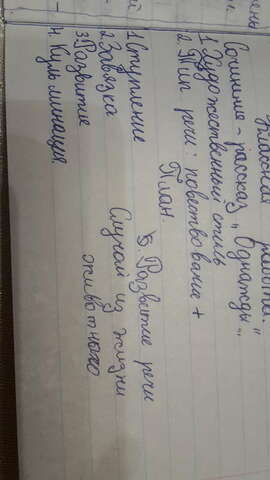 Классная работа.
Сочинение - рассказ "Однажды"
1 Художественный стиль
2. Тип речи: повествование +
План.
1 Вступление
2 Завязка
3. Развитие
4. Кульминация.
5 Развитие речи
Случай из жизни
животного